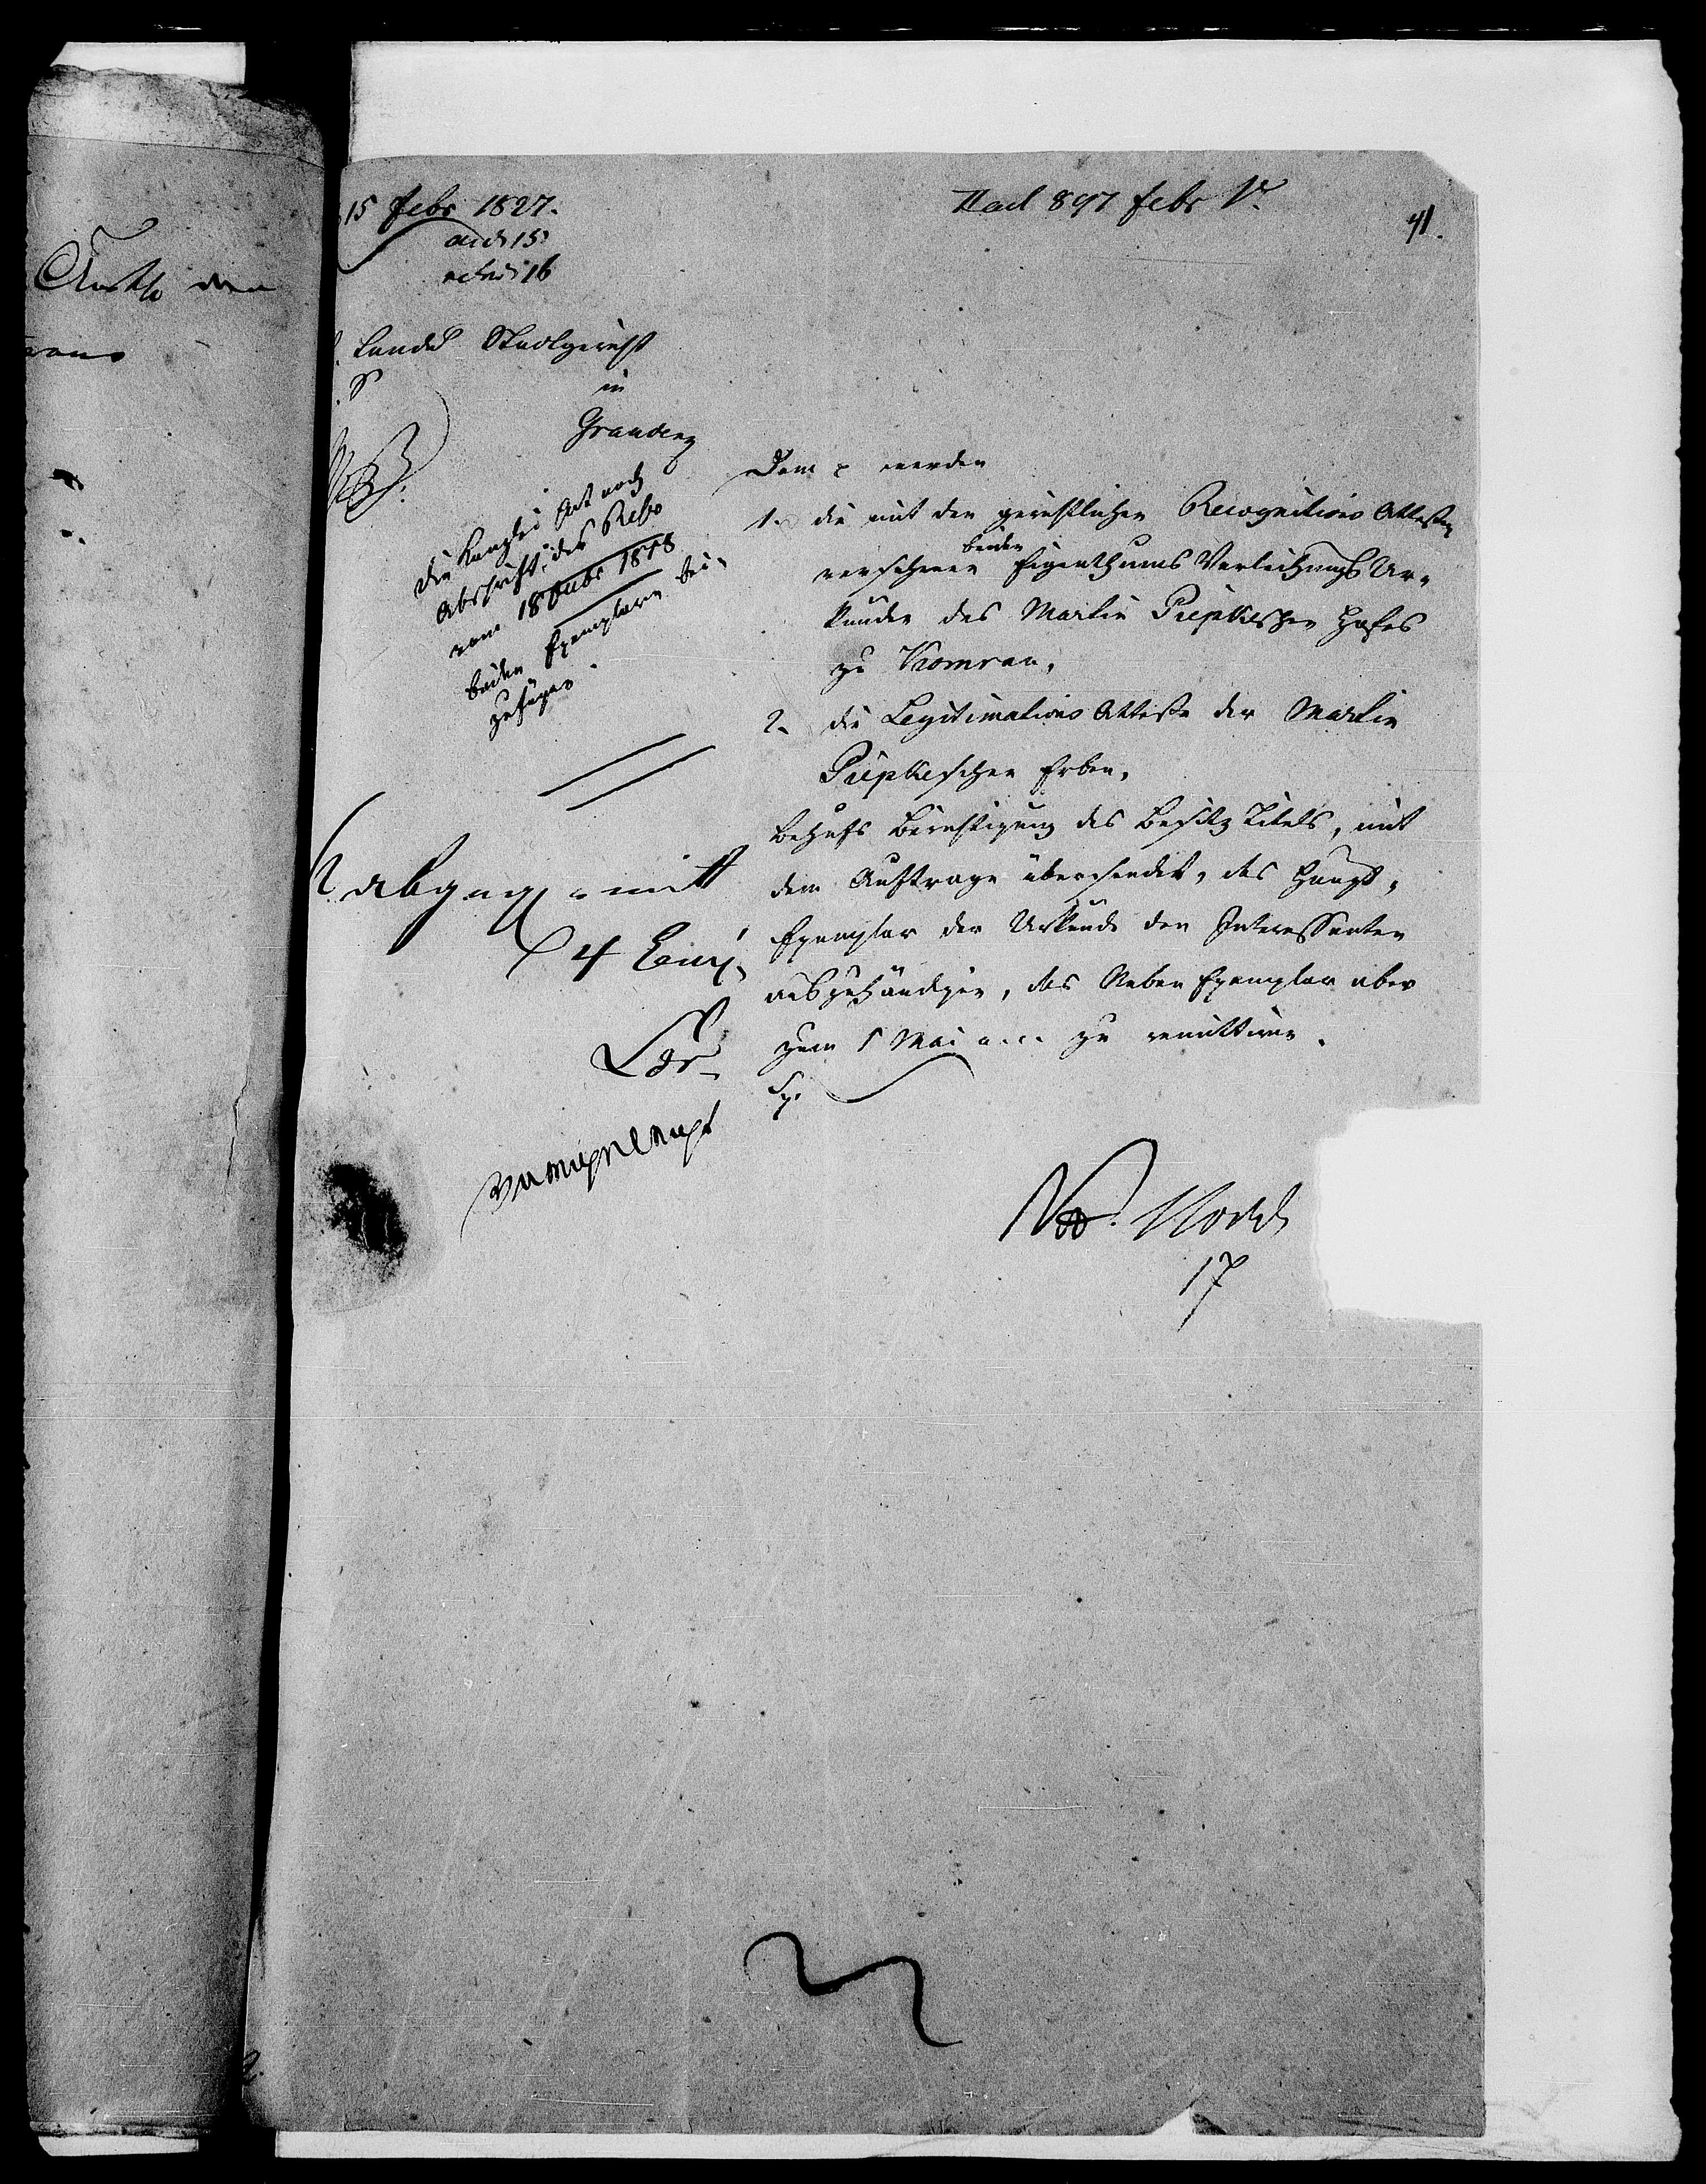 15 febr 1827.
II ad 897 febr
41.
Land Stadtgericht
in
Graudenz
Die Kanzlei hat noch
Abschrift des
vom 18 1818
beiden Exemplaren bei-
zufügen.
Dem werden
1. die mit den gerichtlichen Recognitions Attesten
beiden
versehenen Eigenthums Verleihungs Ur-
kunden des Martin Piepkeschen Hofes
zu Komrau,
2. die Legitimations Atteste der Martin
Piepkeschen Erben,
behufs Berichtigung des Besitz Titels, mit
dem Auftrage übersendet, das Haupt-
Exemplar der Urkunde den Interessenten
auszuhändigen, das Neben Exemplar aber
zum 1 Mai a. c. zu remittiren.
mit
4
17